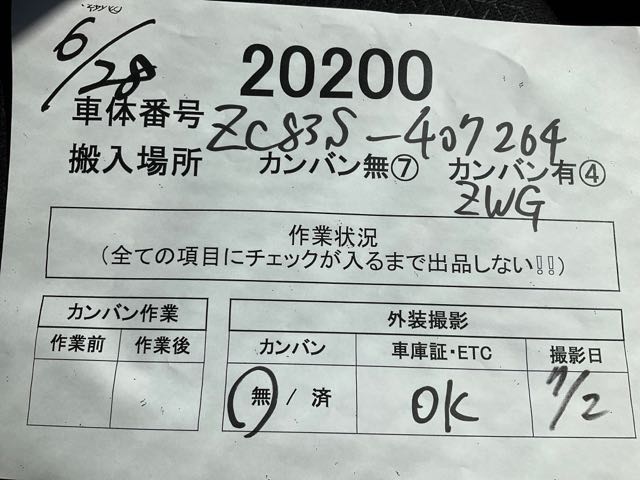 6/28
20200
車体番号 ZC83S-407264
搬入場所 カンバン無⑦ カンバン有④
ZWG
作業状況
(全ての項目にチェックが入るまで出品しない!!)
カンバン作業 外装撮影
作業前 作業後 カンバン 車庫証・ETC 撮影日
無 / 済 OK 7/2